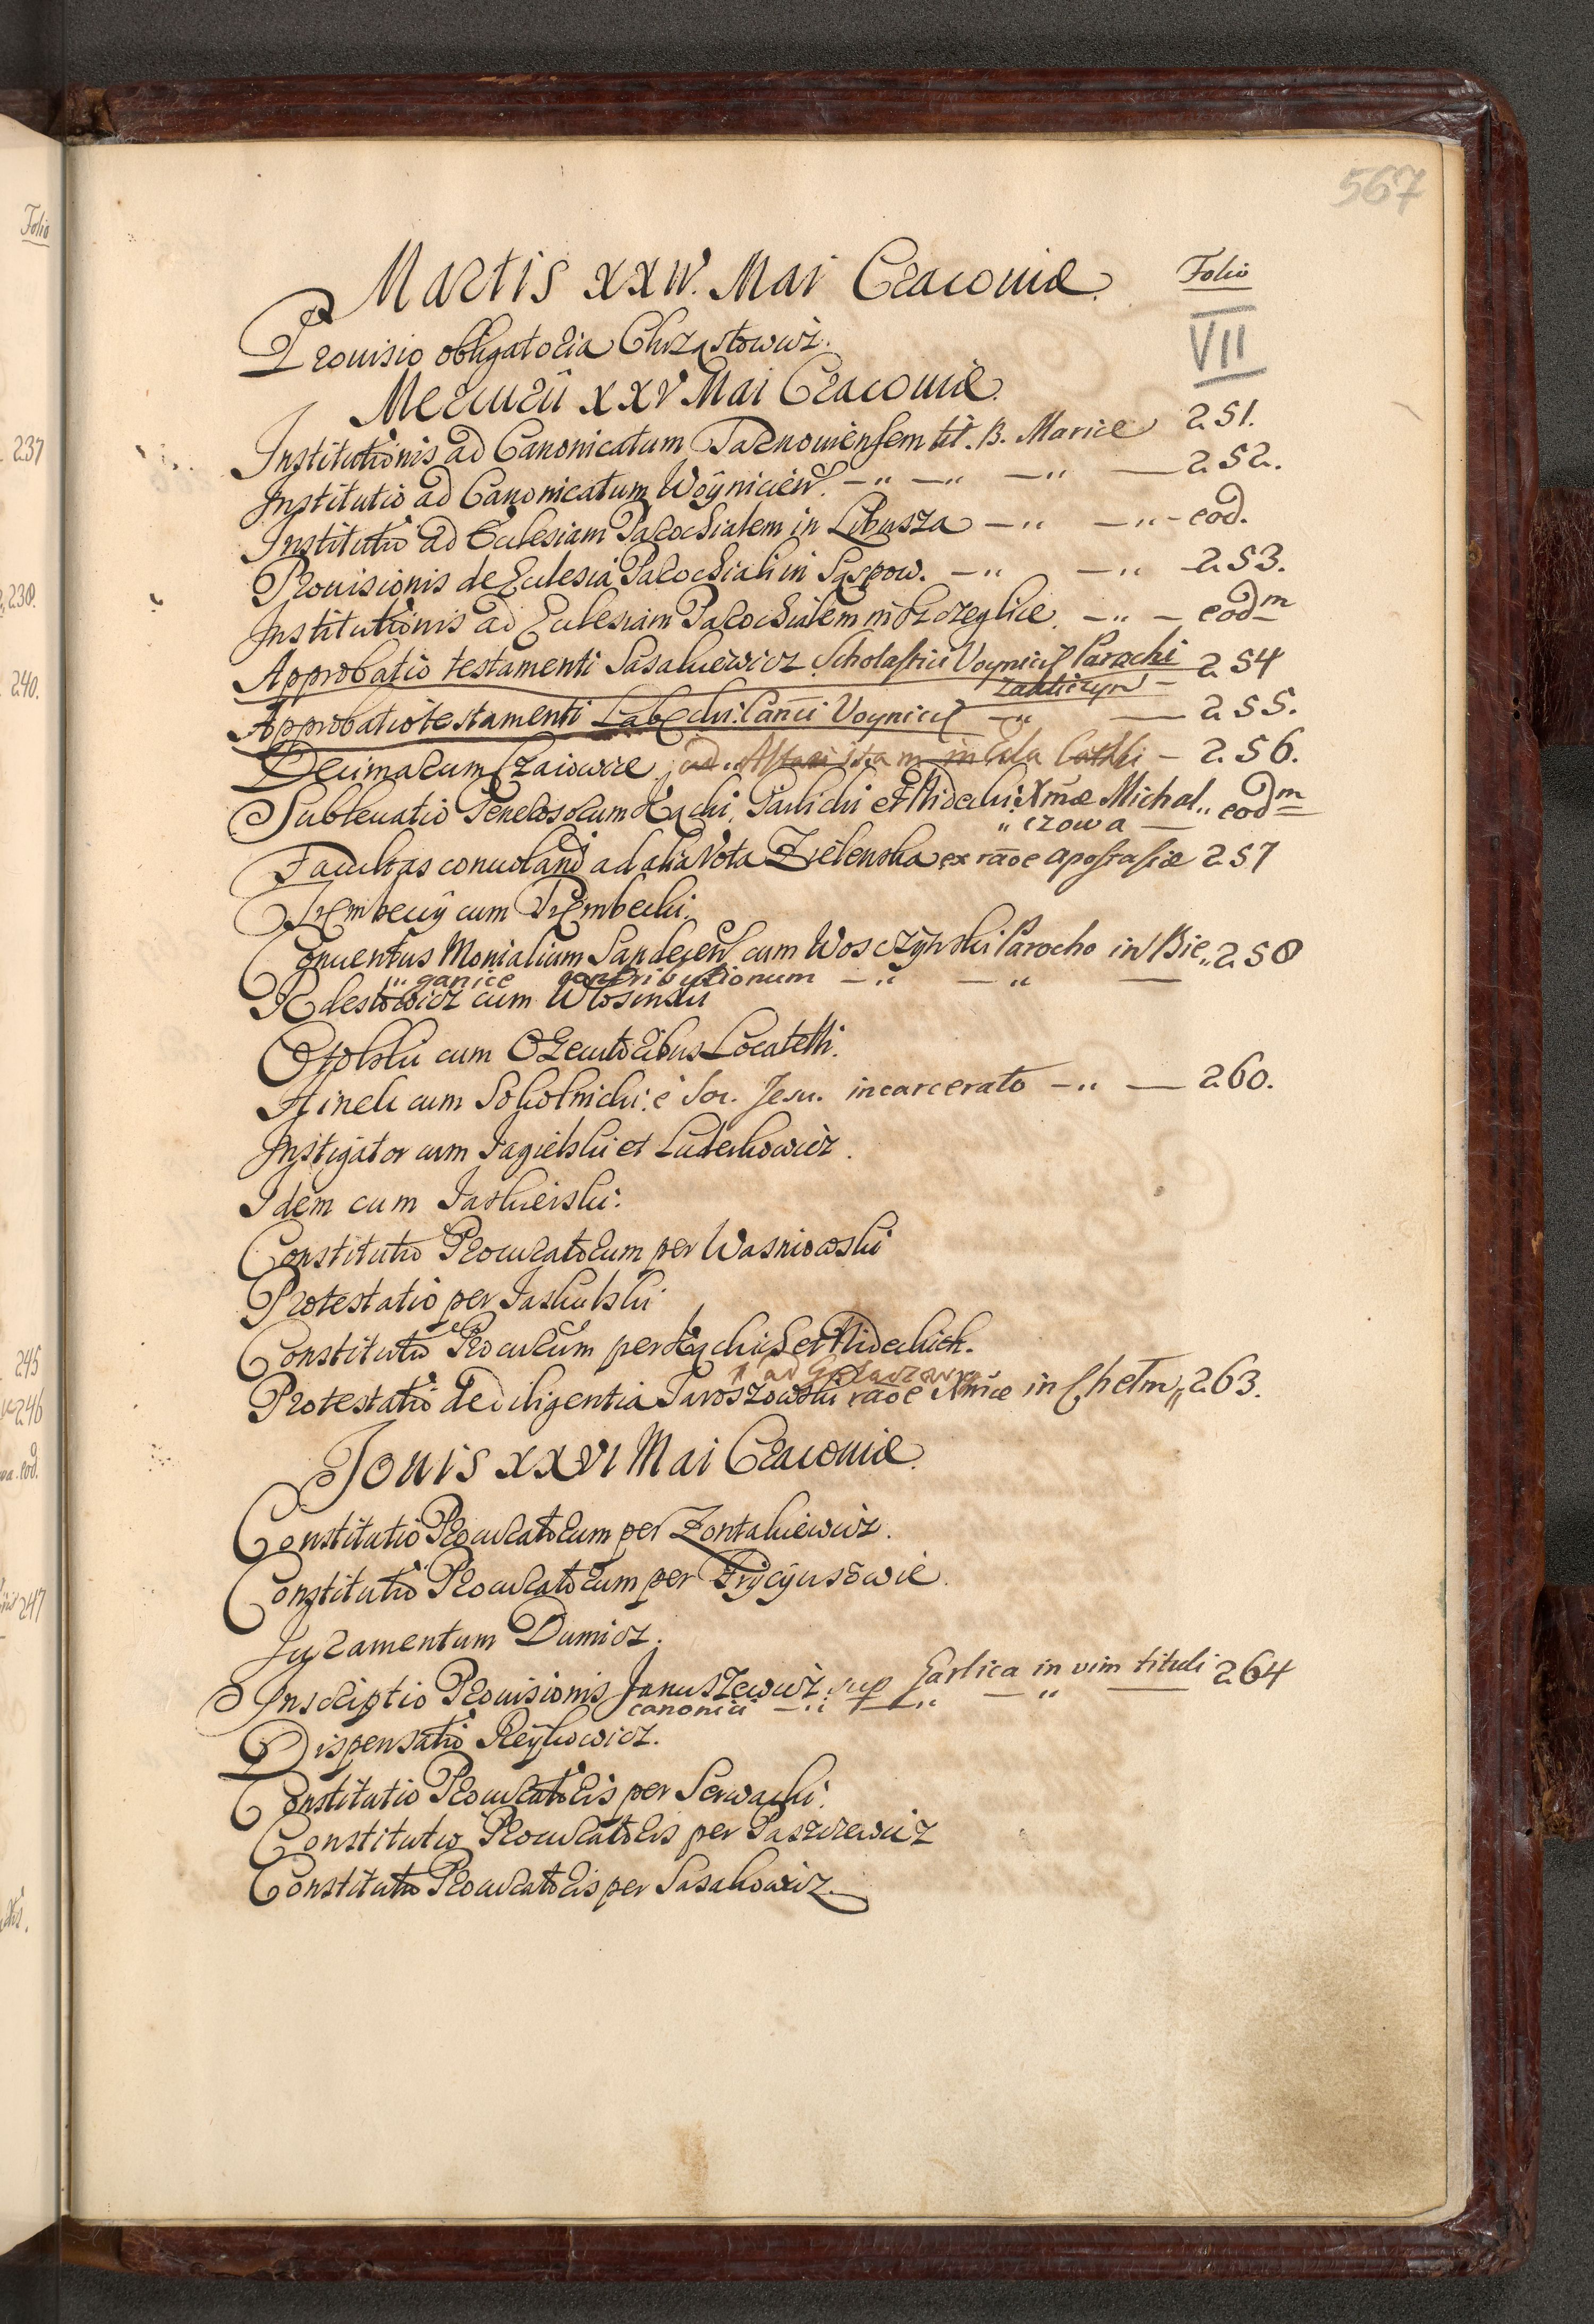 567
Folio
VII
Martis XXIV. Mai Cracoviæ.
Prouisio obligatoria Chrząstowicz.
Mercurÿ XXV Mai Cracouiæ.
Institutionis ad Canonicatum Tarnouiensem tit. B. Mariæ 251.
Institutio ad Canonicatum Woÿnicien. -„ -„ -„ — 252.
Institutio ad Ecclesiam Parochialem in Libusza -„ -„- eod.
Prouisionis de Ecclesia Parochiali in Sąspow. -„ -„ 253.
Institutionis ad Ecclesiam Parochialem in Strzeglice. -„ - eodm
Approbatio testamenti Sasakiewicz Scholastici Voynicis Parochi 254
Zakliczyn -
Approbatio testamenti Labęcki: Canci Voynicis -„ — 255.
Decimarum Czaiowice, ad Altaristam in Ecla Cathli - 256.
Subleuatio Generosorum Łącki, Garlicki et Nidecki: Xmæ Michal„ eodm
„czowa —
Facultas conuolandi ad alia Vota Zielenska ex raõe apostasiæ 257
Trembecÿ cum Trembecki.
Conuentus Monialium Sandecen cum Wosczÿnski Parocho in Bie„ 258
„ganice contributionum -„ -„ —
Rdestowicz cum Włosinski
Opolski cum Executoribus Locatelli.
Hinek cum Sokolnicki: è Soc. Jesu. incarcerato -„ — 260.
Instigator cum Jagielski et Ludeckowicz.
Idem cum Jaskierski:
Constitutio Procuratorum per Wasniowski
Protestatio per Jaskulski
Constitutio Procurum per Łąckich et Nideckich.
Protestatio de diligentia Jaroszowski raõe Xmæ in Chełm„ 263.
Jouis XXVI Mai Cracouiæ.
Constitutio Procuratorum per Zontakiewicz.
Constitutio Procuratorum per Frÿcÿusowie.
Juramentum Dumicz.
Inscriptio Prouisionis Januszewicz. sup Garlica in vim tituli 264
canonici -„ -„ -„ —
Dispensatio Reÿkowicz.
Constitutio Procuratoris per Serwacki.
Constitutio Procuratoris per Paszczewicz
Constitutio Procuratoris per Sasakowicz.
Folio
237
238.
240.
245
246
eod.
247